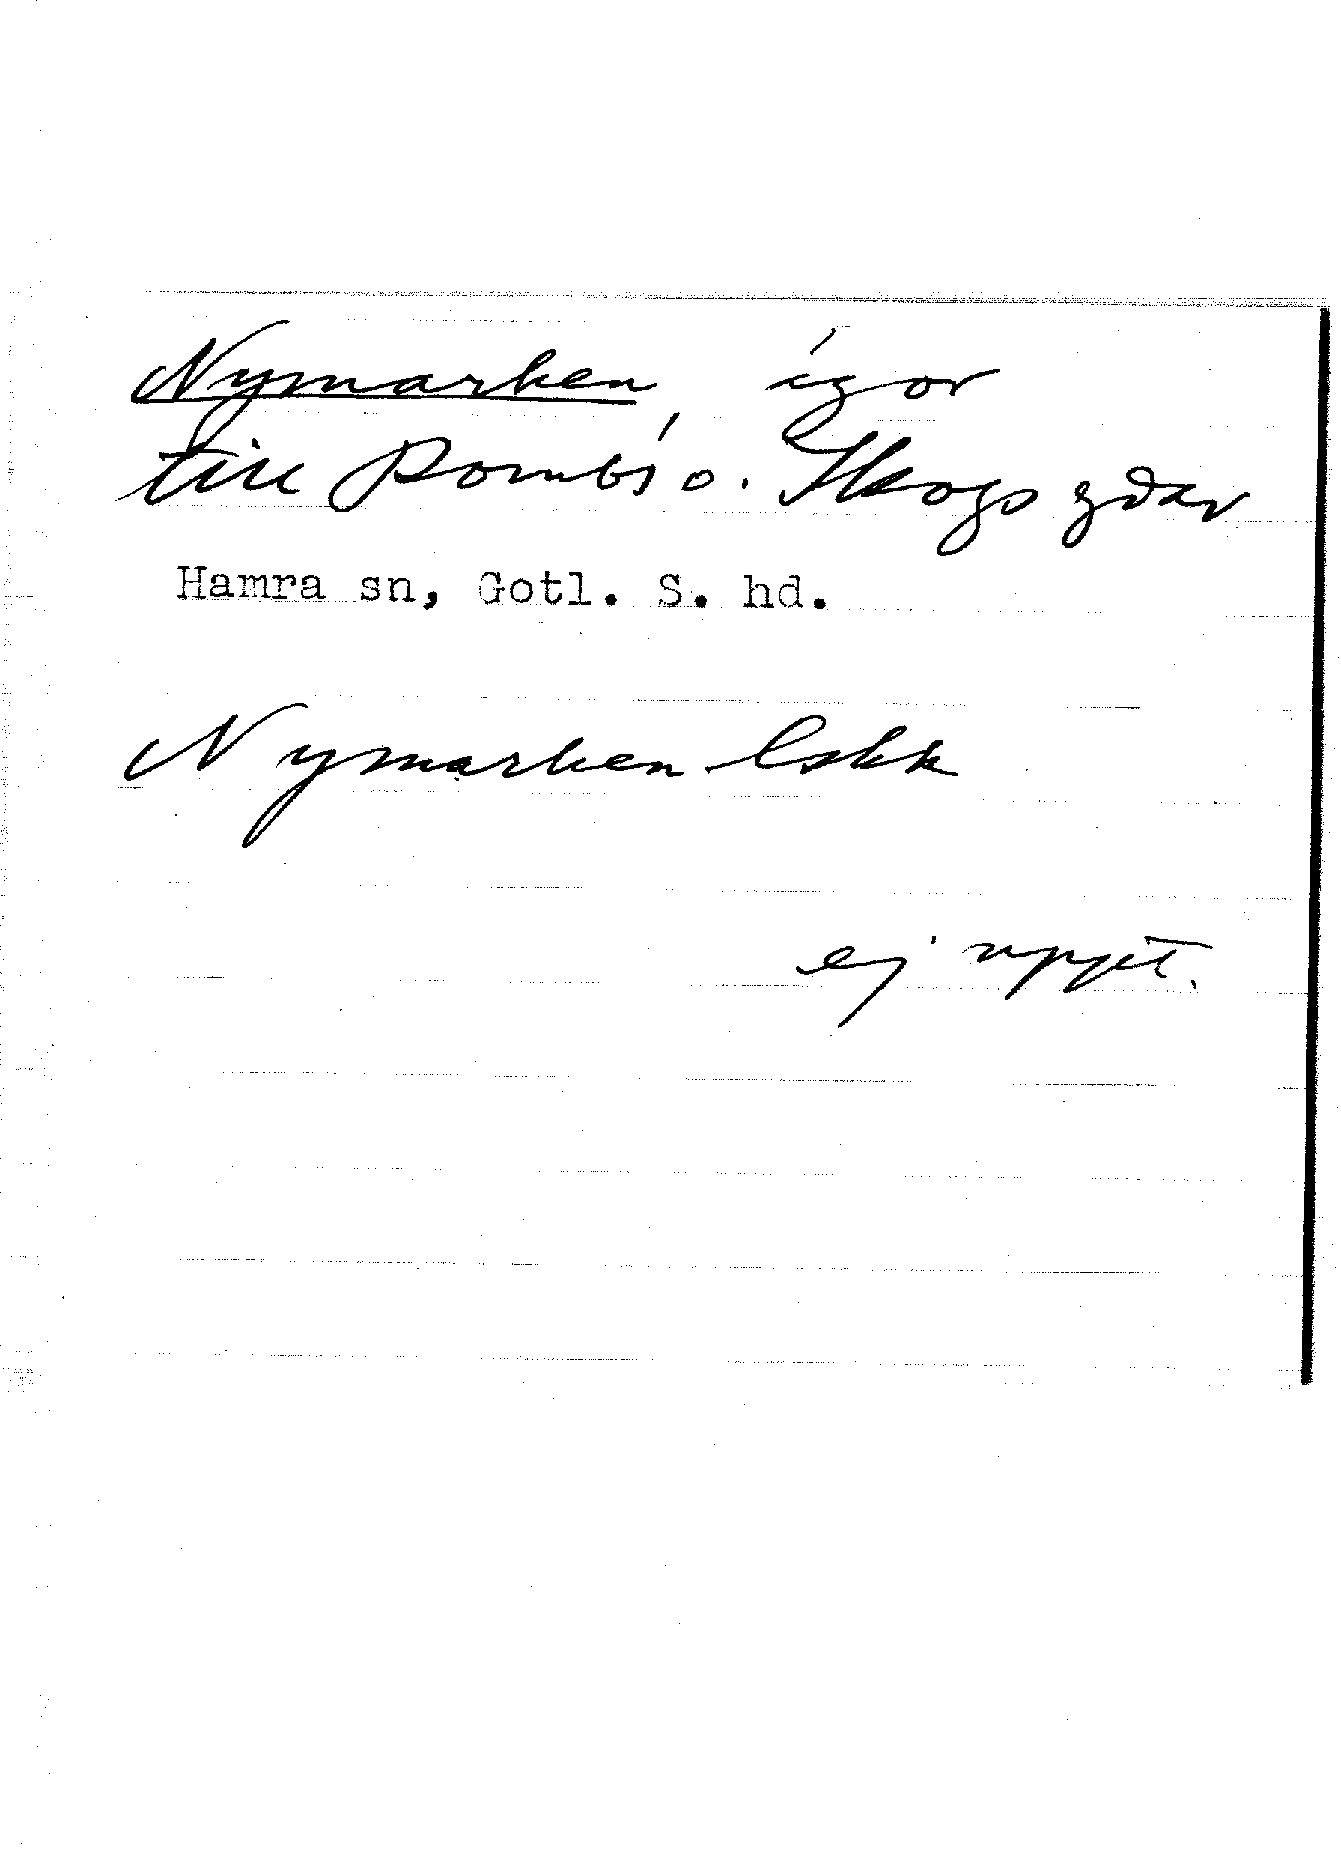 Nymarken, ägor
till Dombs o. Skogs gdar
Hamra sn, Gotl. S. hd.
Nymarken Eskk
ej uppt.